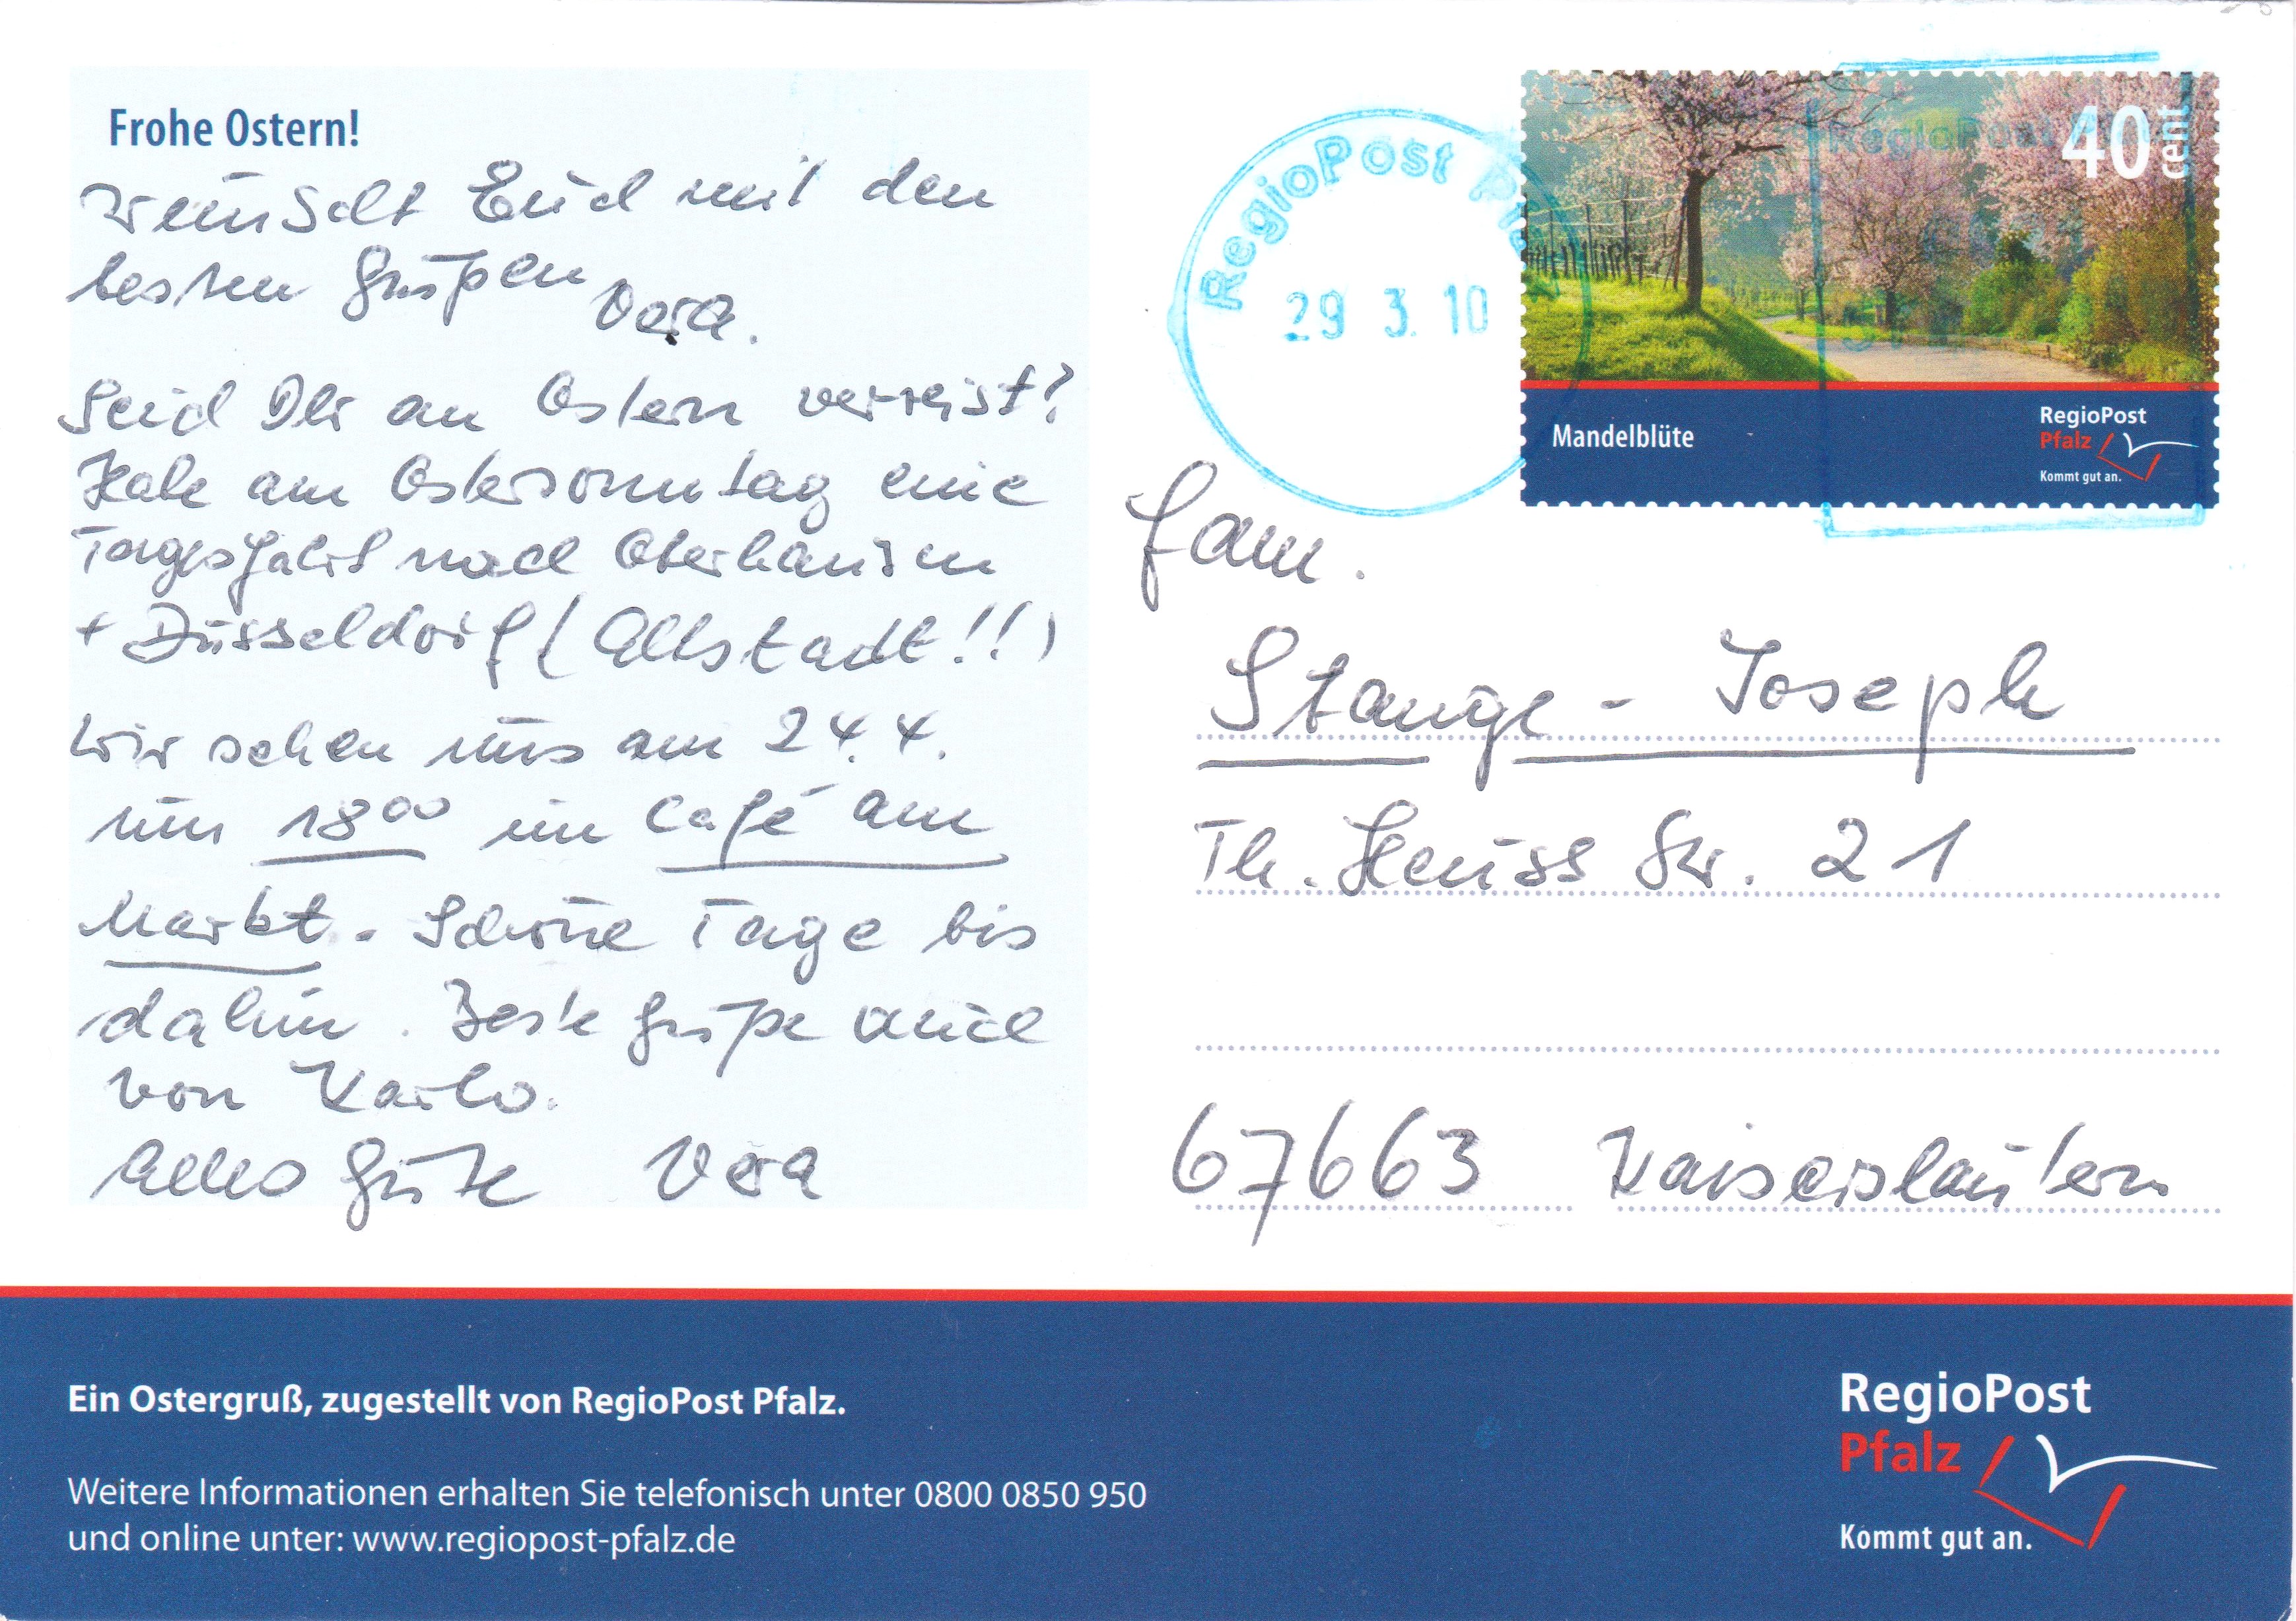 Frohe Ostern!
wünscht Euch mit den
besten Grüßen
Vera.
Seid Ihr an Ostern verreist?
Habe am Ostersonntag eine
Tagesfahrt nach Oberhausen
+ Düsseldorf (Altstadt!!)
Wir sehen uns am 24.4.
um 18⁰⁰ im Café am
Markt. Schöne Tage bis
dahin. Beste Grüße auch
von Karlo.
Alles Gute Vera
RegioPost Pfalz
29 3. 10
RegioPost
40 cent
Mandelblüte
RegioPost
Pfalz
Kommt gut an.
Fam.
Stange - Joseph
Th. Heuss Str. 21
67663 Kaiserslautern
Ein Ostergruß, zugestellt von RegioPost Pfalz.
Weitere Informationen erhalten Sie telefonisch unter 0800 0850 950
und online unter: www.regiopost-pfalz.de
RegioPost
Pfalz
Kommt gut an.